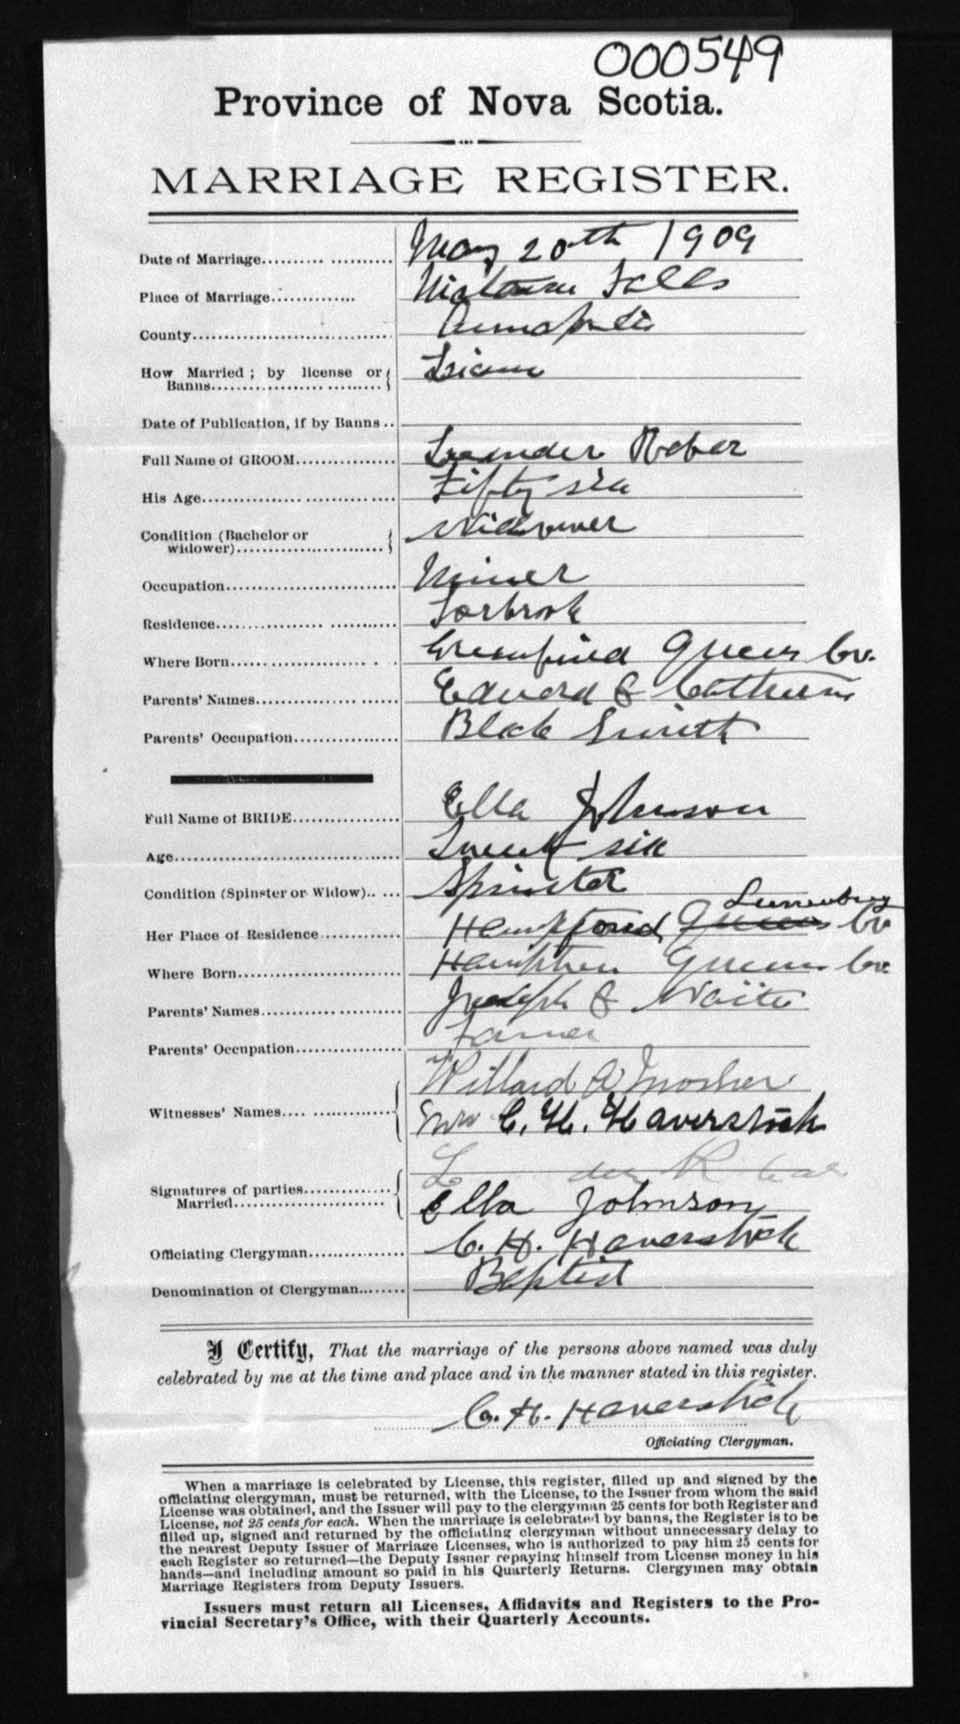 000549
Province of Nova Scotia.
MARRIAGE REGISTER.
Date of Marriage.......... May 20th 1909
Place of Marriage.............. Falls
County.............................. Annapolis
How Married ; by license or
Banns........................
Date of Publication, if by Banns ..
Full Name of GROOM............... Leander
His Age............................. Fifty six
Condition (Bachelor or
widower)...................... Widower
Occupation.......................... Miner
Residence........................... Torbrook
Where Born......................... Queens Co.
Parents' Names..................... Edward & Catherine
Parents' Occupation................ Black Smith
Full Name of BRIDE................ Ella Johnson
Age.................................. six
Condition (Spinster or Widow)..... Spinster
Lunenburg
Her Place of Residence............ Queens Co
Where Born........................ Queens Co.
Parents' Names..................... &
Parents' Occupation............... Farmer
Willard A Mosher
Witnesses' Names.................. Mrs C. H. Haverstock
Signatures of parties..............
Married........................ Ella Johnson
Officiating Clergyman............. C. H. Haverstock
Denomination of Clergyman........ Baptist
I Certify, That the marriage of the persons above named was duly
celebrated by me at the time and place and in the manner stated in this register.
C. H. Haverstock
Officiating Clergyman.
When a marriage is celebrated by License, this register, filled up and signed by the
officiating clergyman, must be returned, with the License, to the Issuer from whom the said
License was obtained, and the Issuer will pay to the clergyman 25 cents for both Register and
License, not 25 cents for each. When the marriage is celebrated by banns, the Register is to be
filled up, signed and returned by the officiating clergyman without unnecessary delay to
the nearest Deputy Issuer of Marriage Licenses, who is authorized to pay him 25 cents for
each Register so returned—the Deputy Issuer repaying himself from License money in his
hands—and including amount so paid in his Quarterly Returns. Clergymen may obtain
Marriage Registers from Deputy Issuers.
Issuers must return all Licenses, Affidavits and Registers to the Pro-
vincial Secretary's Office, with their Quarterly Accounts.